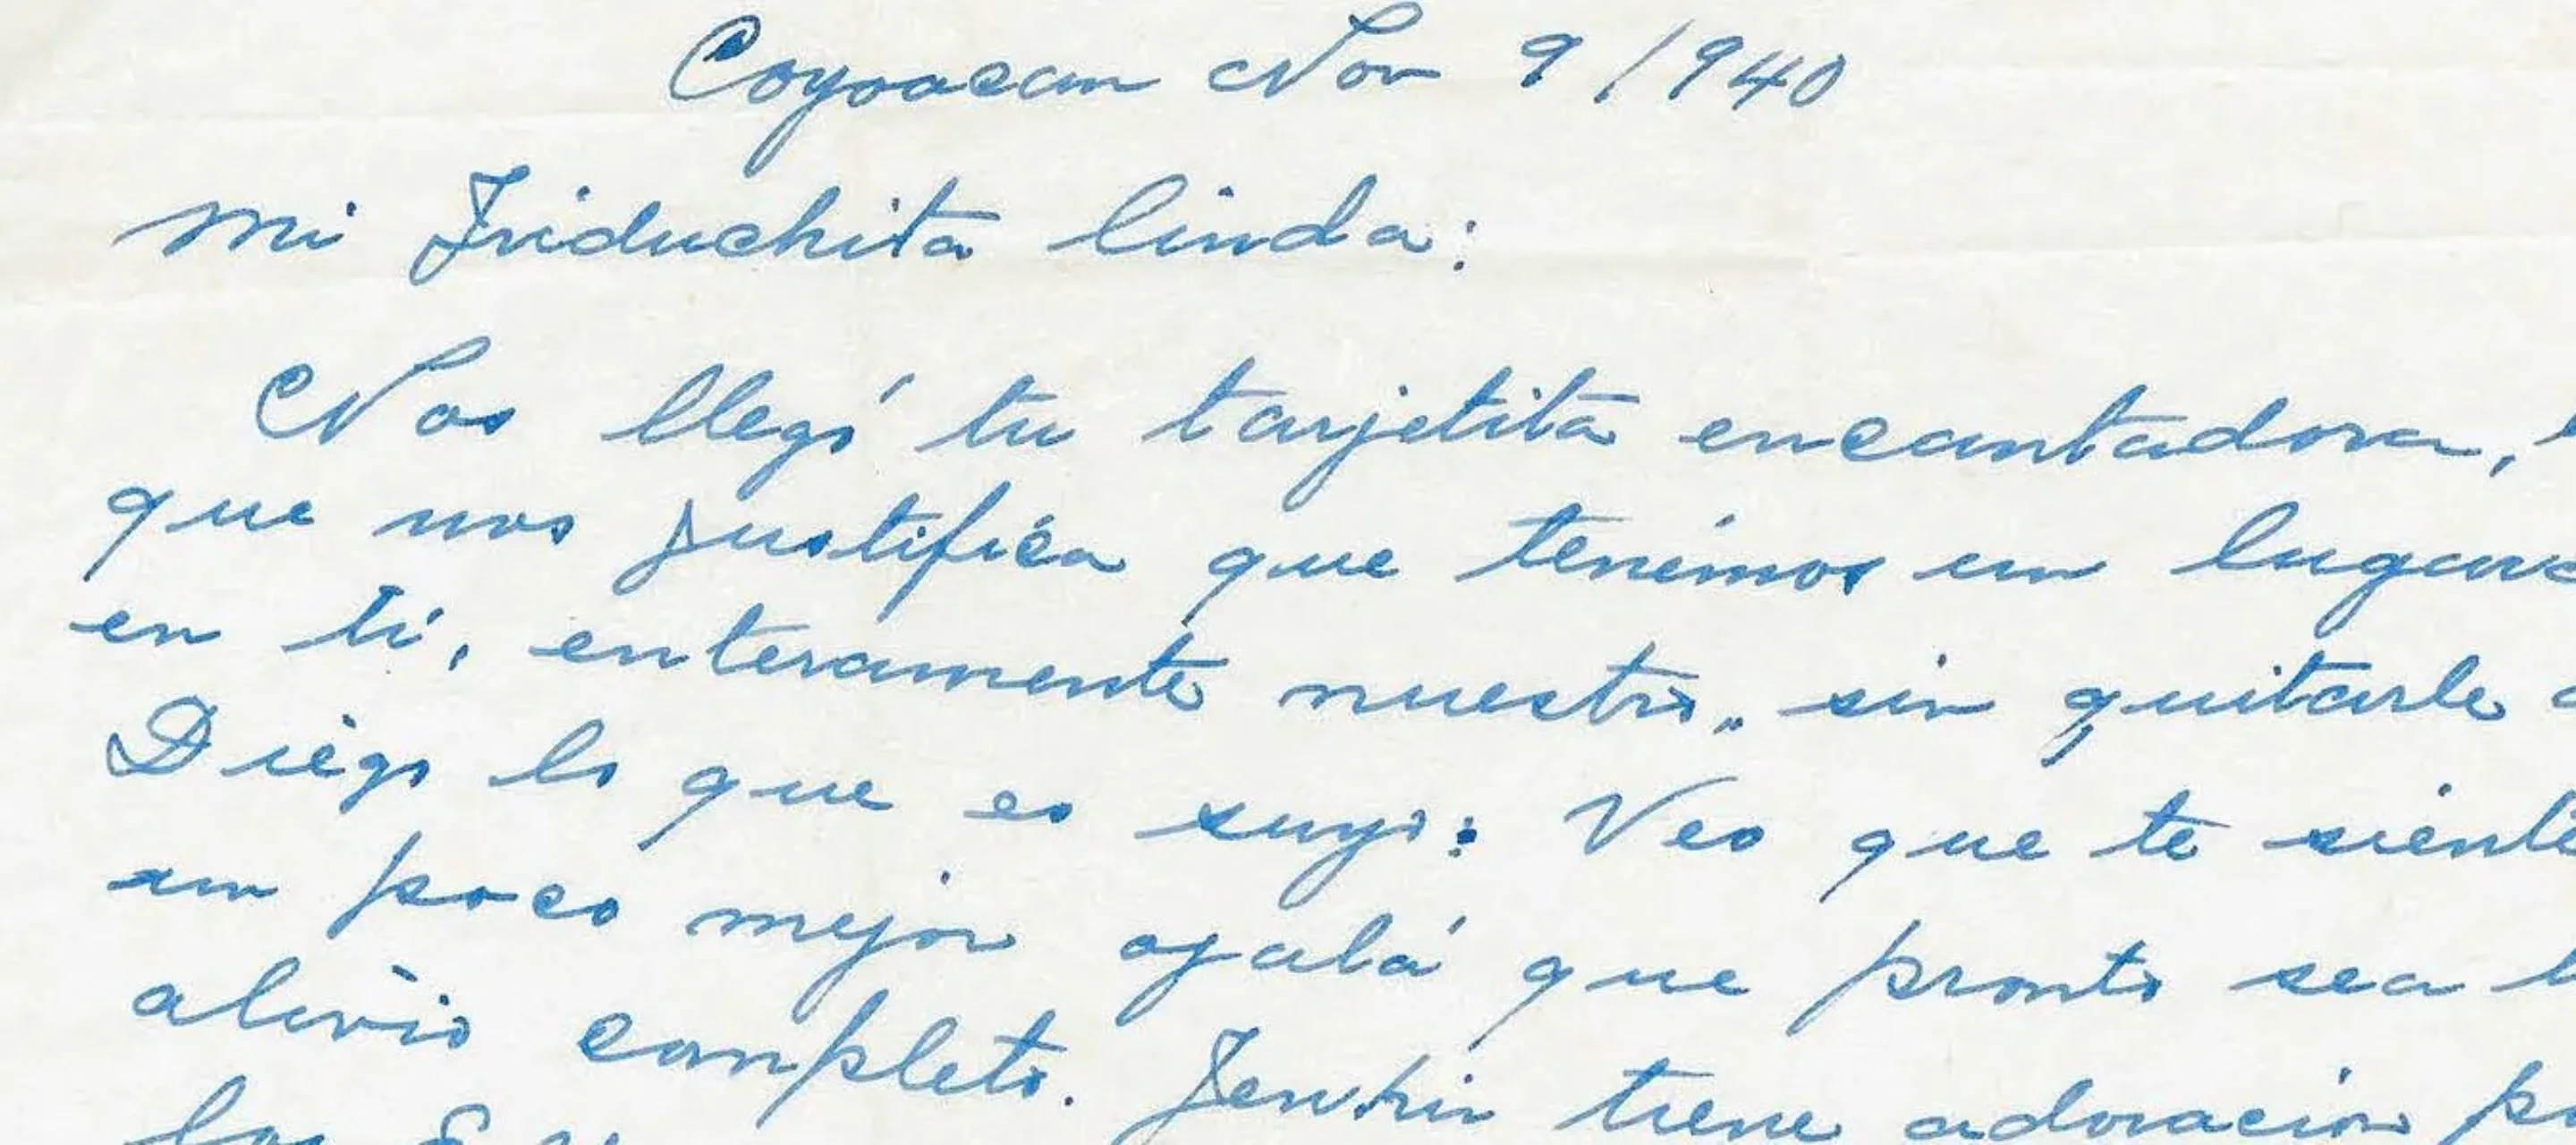 Coyoacan Nov 9/940
Mi Friduchita linda:
Nos llegó tu tarjetita encantadora,
que nos justifica que tenémos un lugar
en ti, enteramente nuestro, sin quitarle
Diego lo que es suyo: Veo que te siente
un poco mejor ojalá que pronto sea
alivio completo. tiene adoracion
los